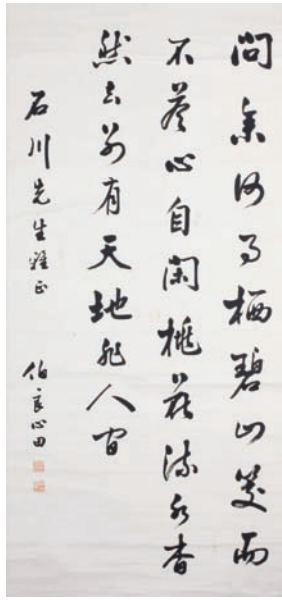 問余何事栖碧山笑而
不答心自閑桃花流水杳
然去別有天地非人間
石川先生雅正 伯良心田